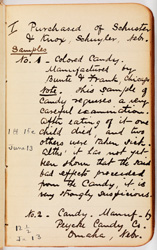 I Purchased of Schuster
& Knox Schuyler, Neb.
Samples
No. 1 - Colored Candy.
Manufactured by
Bunte & Frank, Chicago
Note. This sample of
candy requires a very
careful examination.
After eating of it one
child died, and two
1 H 15c
others were taken sick.
June 13
While it has not yet
been shown that the said
bad effects proceeded
from the Candy, it is
very strongly suspicious.
No. 2 - Candy. Manuf. by
Peycke Candy Co.
Omaha, Neb.